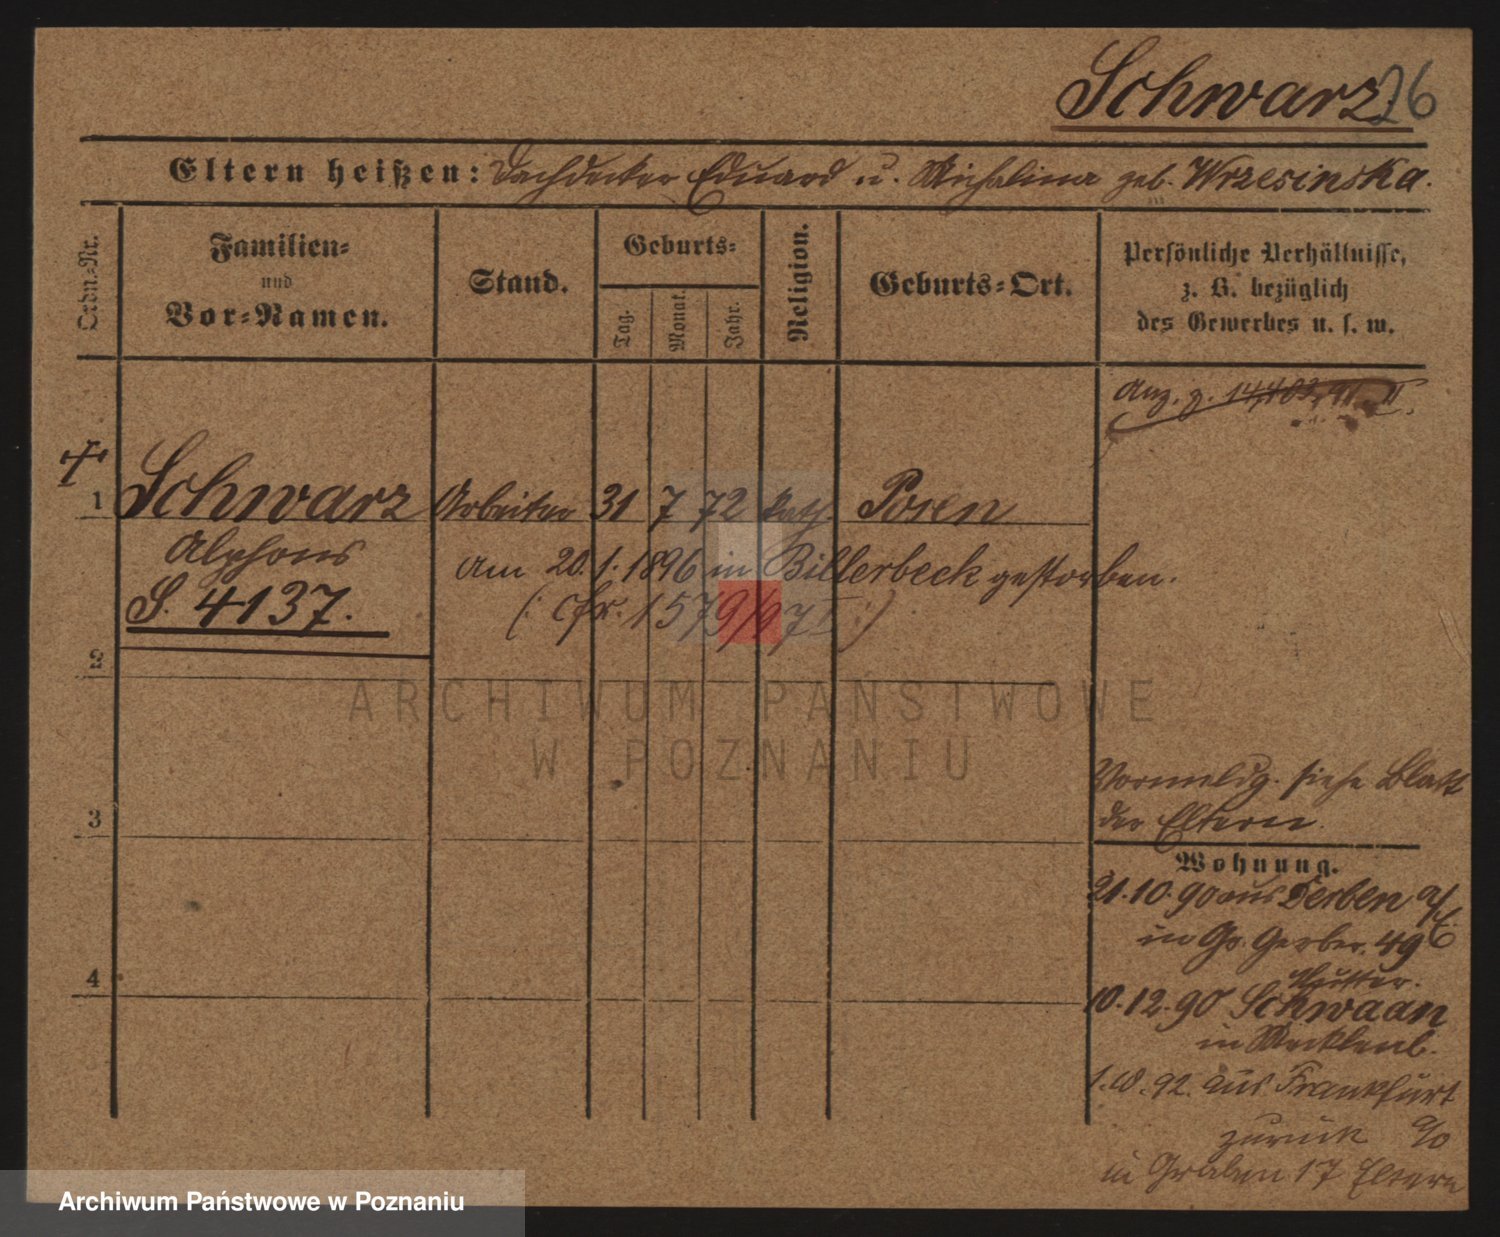 Schwarz. 26
Eltern heißen: Dachdecker Eduard u. Michalina geb. Wrzesinska.
Ordn.-Nr.
Familien-
und
Vor-Namen.
Stand.
Geburts-
Tag.
Monat.
Jahr.
Religion.
Geburts-Ort.
Persönliche Verhältnisse,
z. B. bezüglich
des Gewerbes u. s. w.
Anz. z.
1 Schwarz Arbeiter 31 7 72 kath. Posen
Alphons
am 20.1.1896 in Billerbeck gestorben.
S. 4137.
(: cfr. 1579/97 I :)
2
ARCHIWUM PAŃSTWOWE
W POZNANIU
3
Vormeldg. siehe Blatt
der Eltern.
Wohnung.
21.10.90 aus Derben a/E.
in Gr. Gerber. 49
Mutter.
4
10.12.90 Schwaan
in Mecklenb.
92. aus Frankfurt
zurück a/o
in Graben 17 Eltern
Archiwum Państwowe w Poznaniu